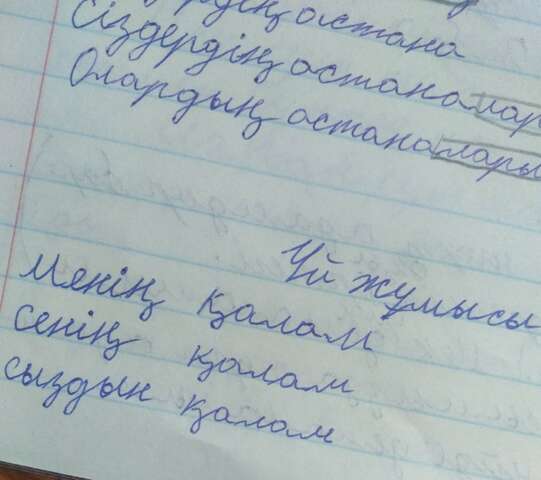 остана
Сіздердің астаналар
Олардың астаналары
Үй жұмысы
Мянің қалам
сенің қалам
сыздын қалам